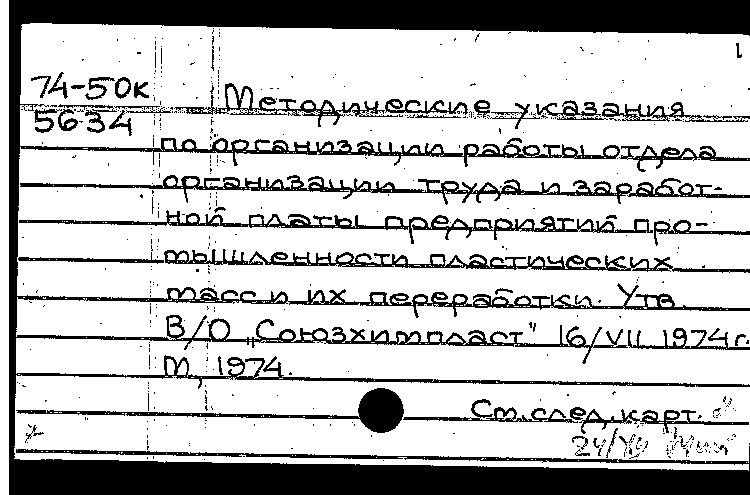 1
74-50к
5634
Методические указания
по организации работы отдела
организации труда и заработ-
ной платы предприятий про-
мышленности пластических
масс и их переработки. Утв.
В/О „Союзхимпласт" 16/VII 1974г.
М, 1974.
См. след. карт.